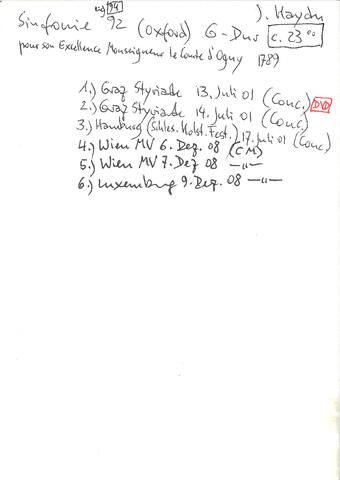 J. Haydn
Sinfonie 92 (Oxford) G-Dur c. 23°°
pour son Excellence Monseigneur le Comte d'Ogny 1789
1.) Graz Styriade 13. Juli 01 (Conc.) DVD
2.) Graz Styriade 14. Juli 01 (Conc.)
3.) Hamburg (Schles. Holst. Fest.) 17. Juli 01 (Conc.)
4.) Wien MV 6. Dez. 08 (CM)
5.) Wien MV 7. Dez 08 —"—
6.) Luxemburg 9. Dez. 08 —"—